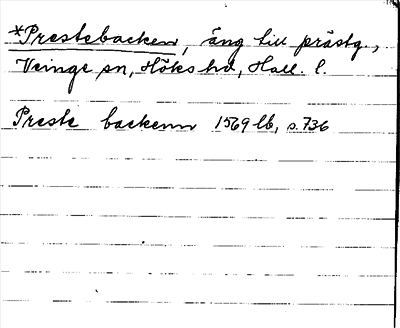 *Prestebacken, äng till prästg.,
Veinge sn, Höks hd, Hall. l.
Preste backenn 1569 lb, s. 736